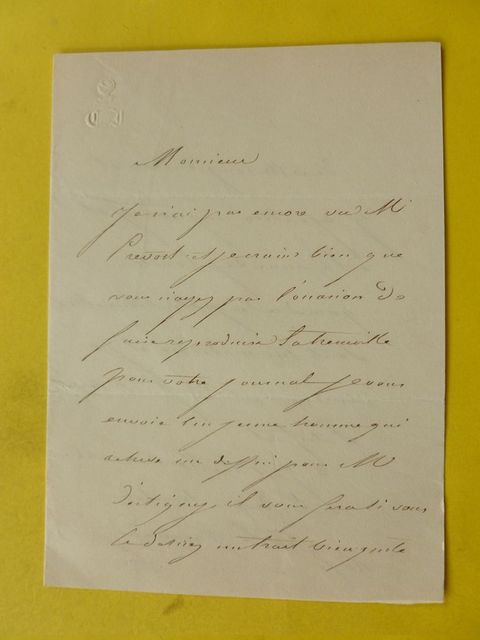 C J
Monsieur
Je n'ai pas encore vu Mr
Prevost et je crains bien que
vous n'ayez pas l'occasion de
faire reproduire
pour votre journal Je vous
envoie un jeune homme qui
acheve un dessin pour M
d'ortigny il vous fera si vous
le desirez un trait bien